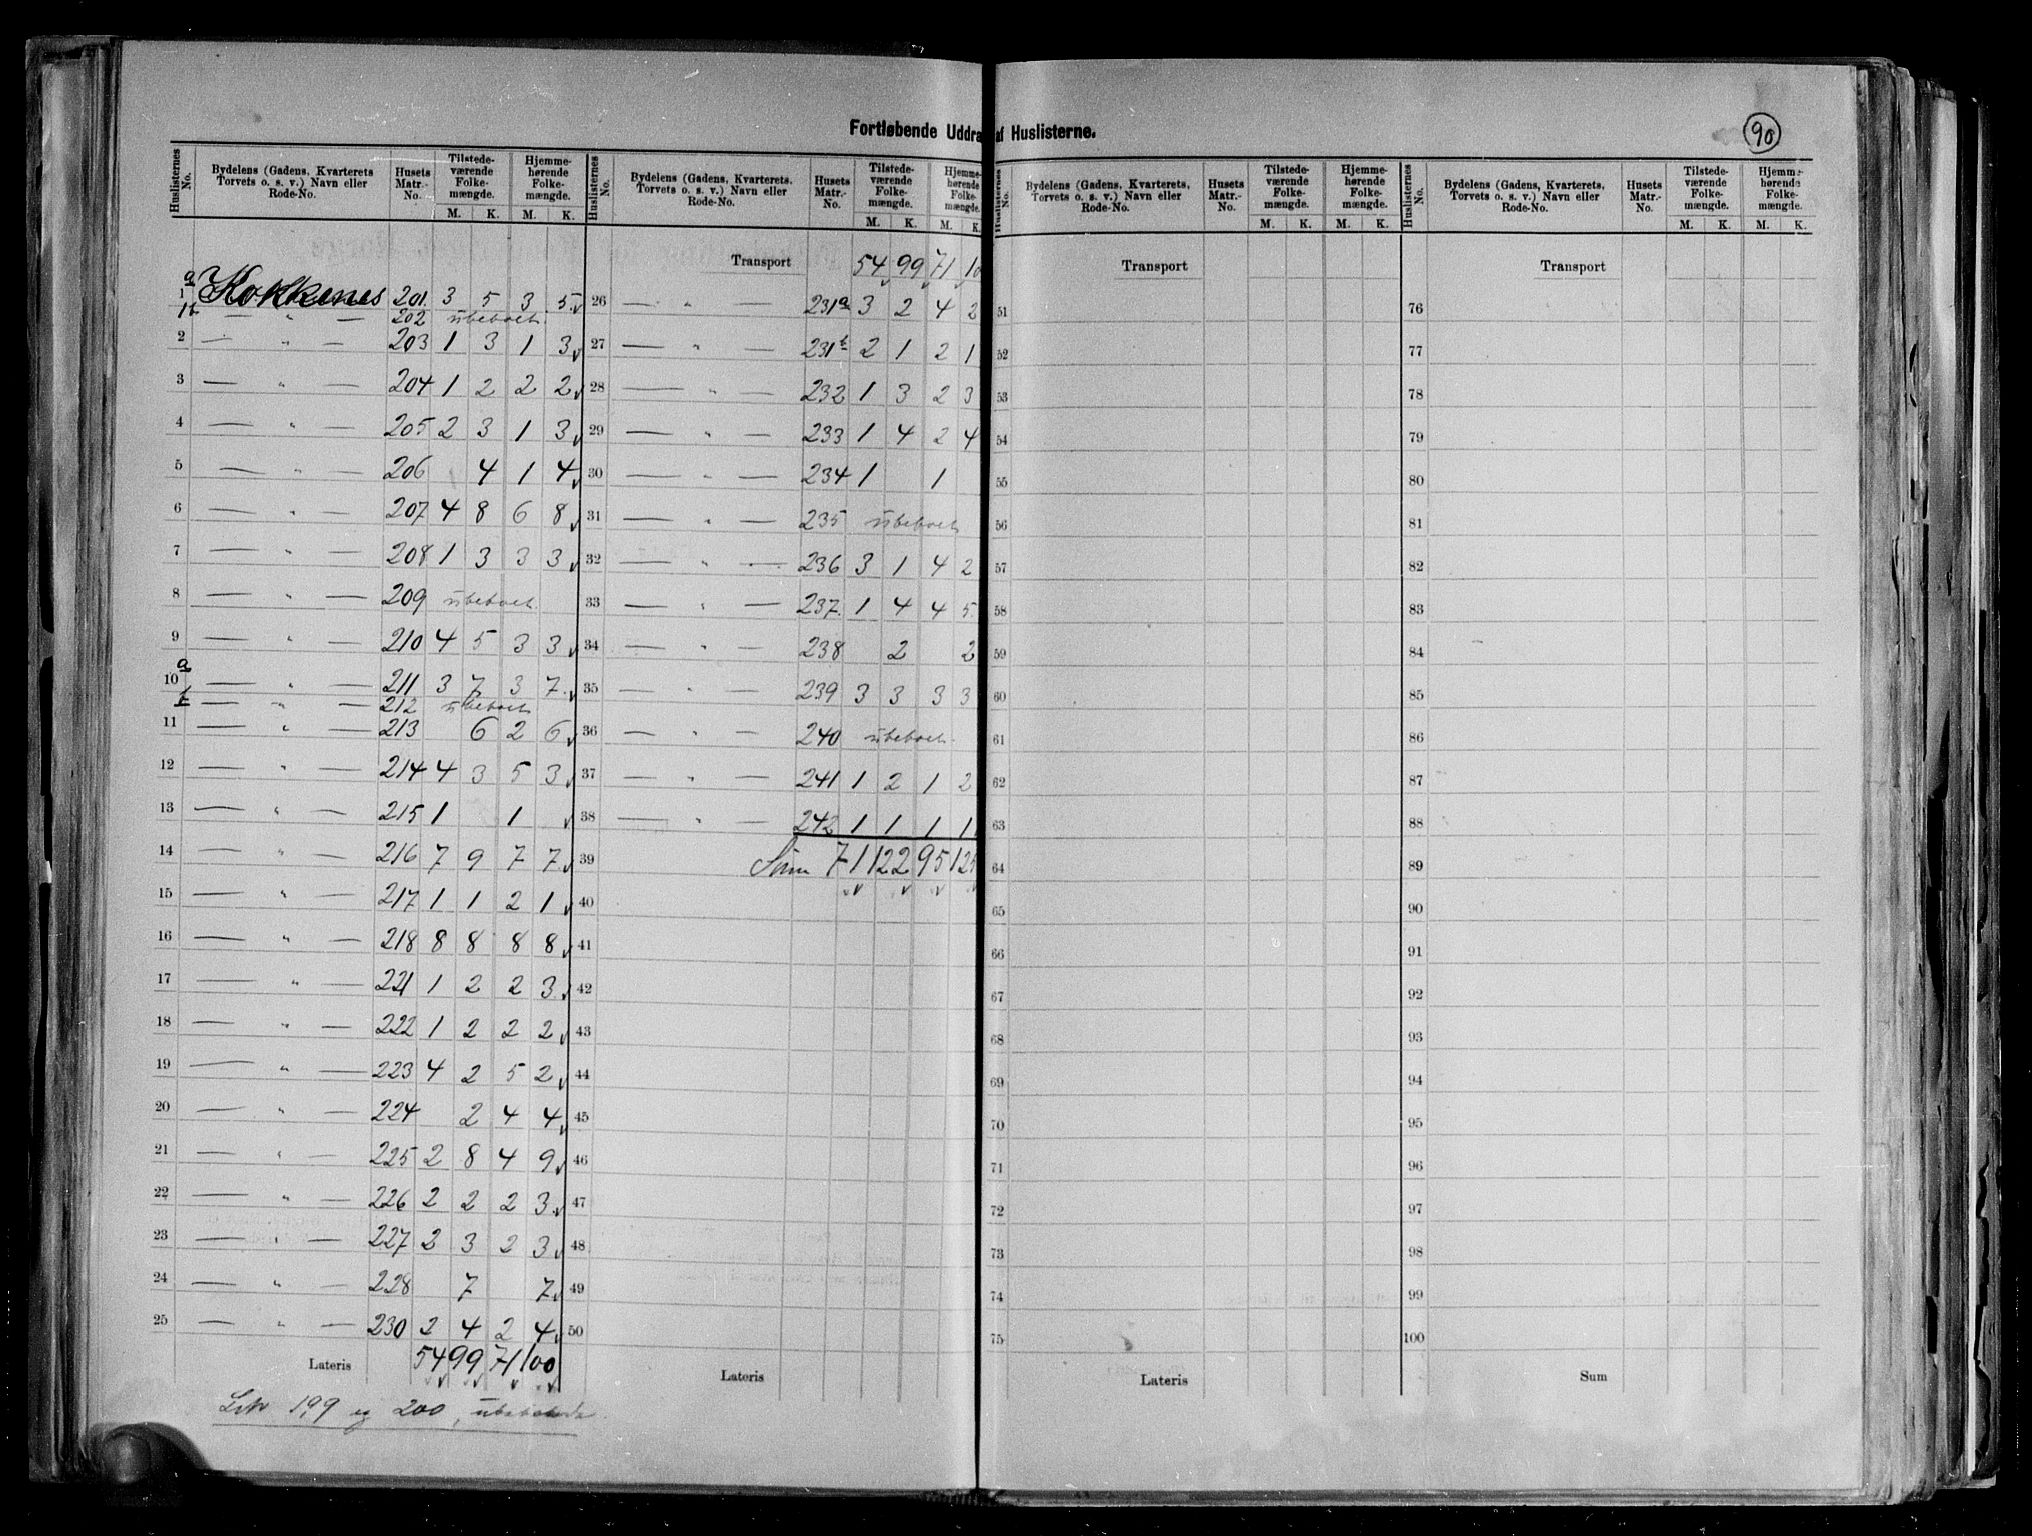 Fortløbende Uddra af Huslisterne.
90
Huslisternes No. Bydelens (Gadens, Kvarterets Torvets o. s. v.) Navn eller Rode-No. Husets Matr.-No. Tilstede-værende Folke-mængde. M. K. Hjemme-hørende Folke-mængde. M. K.
1 a Kokkenes 201 3 5 3 5
1 b — " — 202 ubeboet
2 — " — 203 1 3 1 3
3 — " — 204 1 2 2 2
4 — " — 205 2 3 1 3
5 — " — 206 4 1 4
6 — " — 207 4 8 6 8
7 — " — 208 1 3 3 3
8 — " — 209 ubeboet
9 — " — 210 4 5 3 3
10 a — " — 211 3 7 3 7
b — " — 212 ubeboet
11 — " — 213 6 2 6
12 — " — 214 4 3 5 3
13 — " — 215 1 1
14 — " — 216 7 9 7 7
15 — " — 217 1 1 2 1
16 — " — 218 8 8 8 8
17 — " — 221 1 2 2 3
18 — " — 222 1 2 2 2
19 — " — 223 4 2 5 2
20 — " — 224 2 4 4
21 — " — 225 2 8 4 9
22 — " — 226 2 2 2 3
23 — " — 227 2 3 2 3
24 — " — 228 7 7
25 — " — 230 2 4 2 4
Lateris 54 99 71 100
199 og 200, ubeboede
Huslisternes No. Bydelens (Gadens, Kvarterets, Torvets o. s. v.) Navn eller Rode-No. Husets Matr.-No. Tilstede-værende Folke-mængde. M. K. Hjemme-hørende Folke-mængde. M. K.
Transport 54 99 71 10
26 — " — 231a 3 2 4 2
27 — " — 231b 2 1 2 1
28 — " — 232 1 3 2 3
29 — " — 233 1 4 2 4
30 — " — 234 1 1
31 — " — 235 ubeboet
32 — " — 236 3 1 4 2
33 — " — 237 1 4 4 5
34 — " — 238 2 2
35 — " — 239 3 3 3 3
36 — " — 240 ubeboet
37 — " — 241 1 2 1 2
38 — " — 242 1 1 1 1
39 Sum 71 122 95 125
40
41
42
43
44
45
46
47
48
49
50
Lateris
Huslisternes No. Bydelens (Gadens, Kvarterets, Torvets o. s. v.) Navn eller Rode-No. Husets Matr.-No. Tilstede-værende Folke-mængde. M. K. Hjemme-hørende Folke-mængde. M. K.
Transport
51
52
53
54
55
56
57
58
59
60
61
62
63
64
65
66
67
68
69
70
71
72
73
74
75
Lateris
Huslisternes No. Bydelens (Gadens, Kvarterets, Torvets o. s. v.) Navn eller Rode-No. Husets Matr.-No. Tilstede-værende Folke-mængde. M. K. Hjemme-hørende Folke-mængde. M. K.
Transport
76
77
78
79
80
81
82
83
84
85
86
87
88
89
90
91
92
93
94
95
96
97
98
99
100
Sum